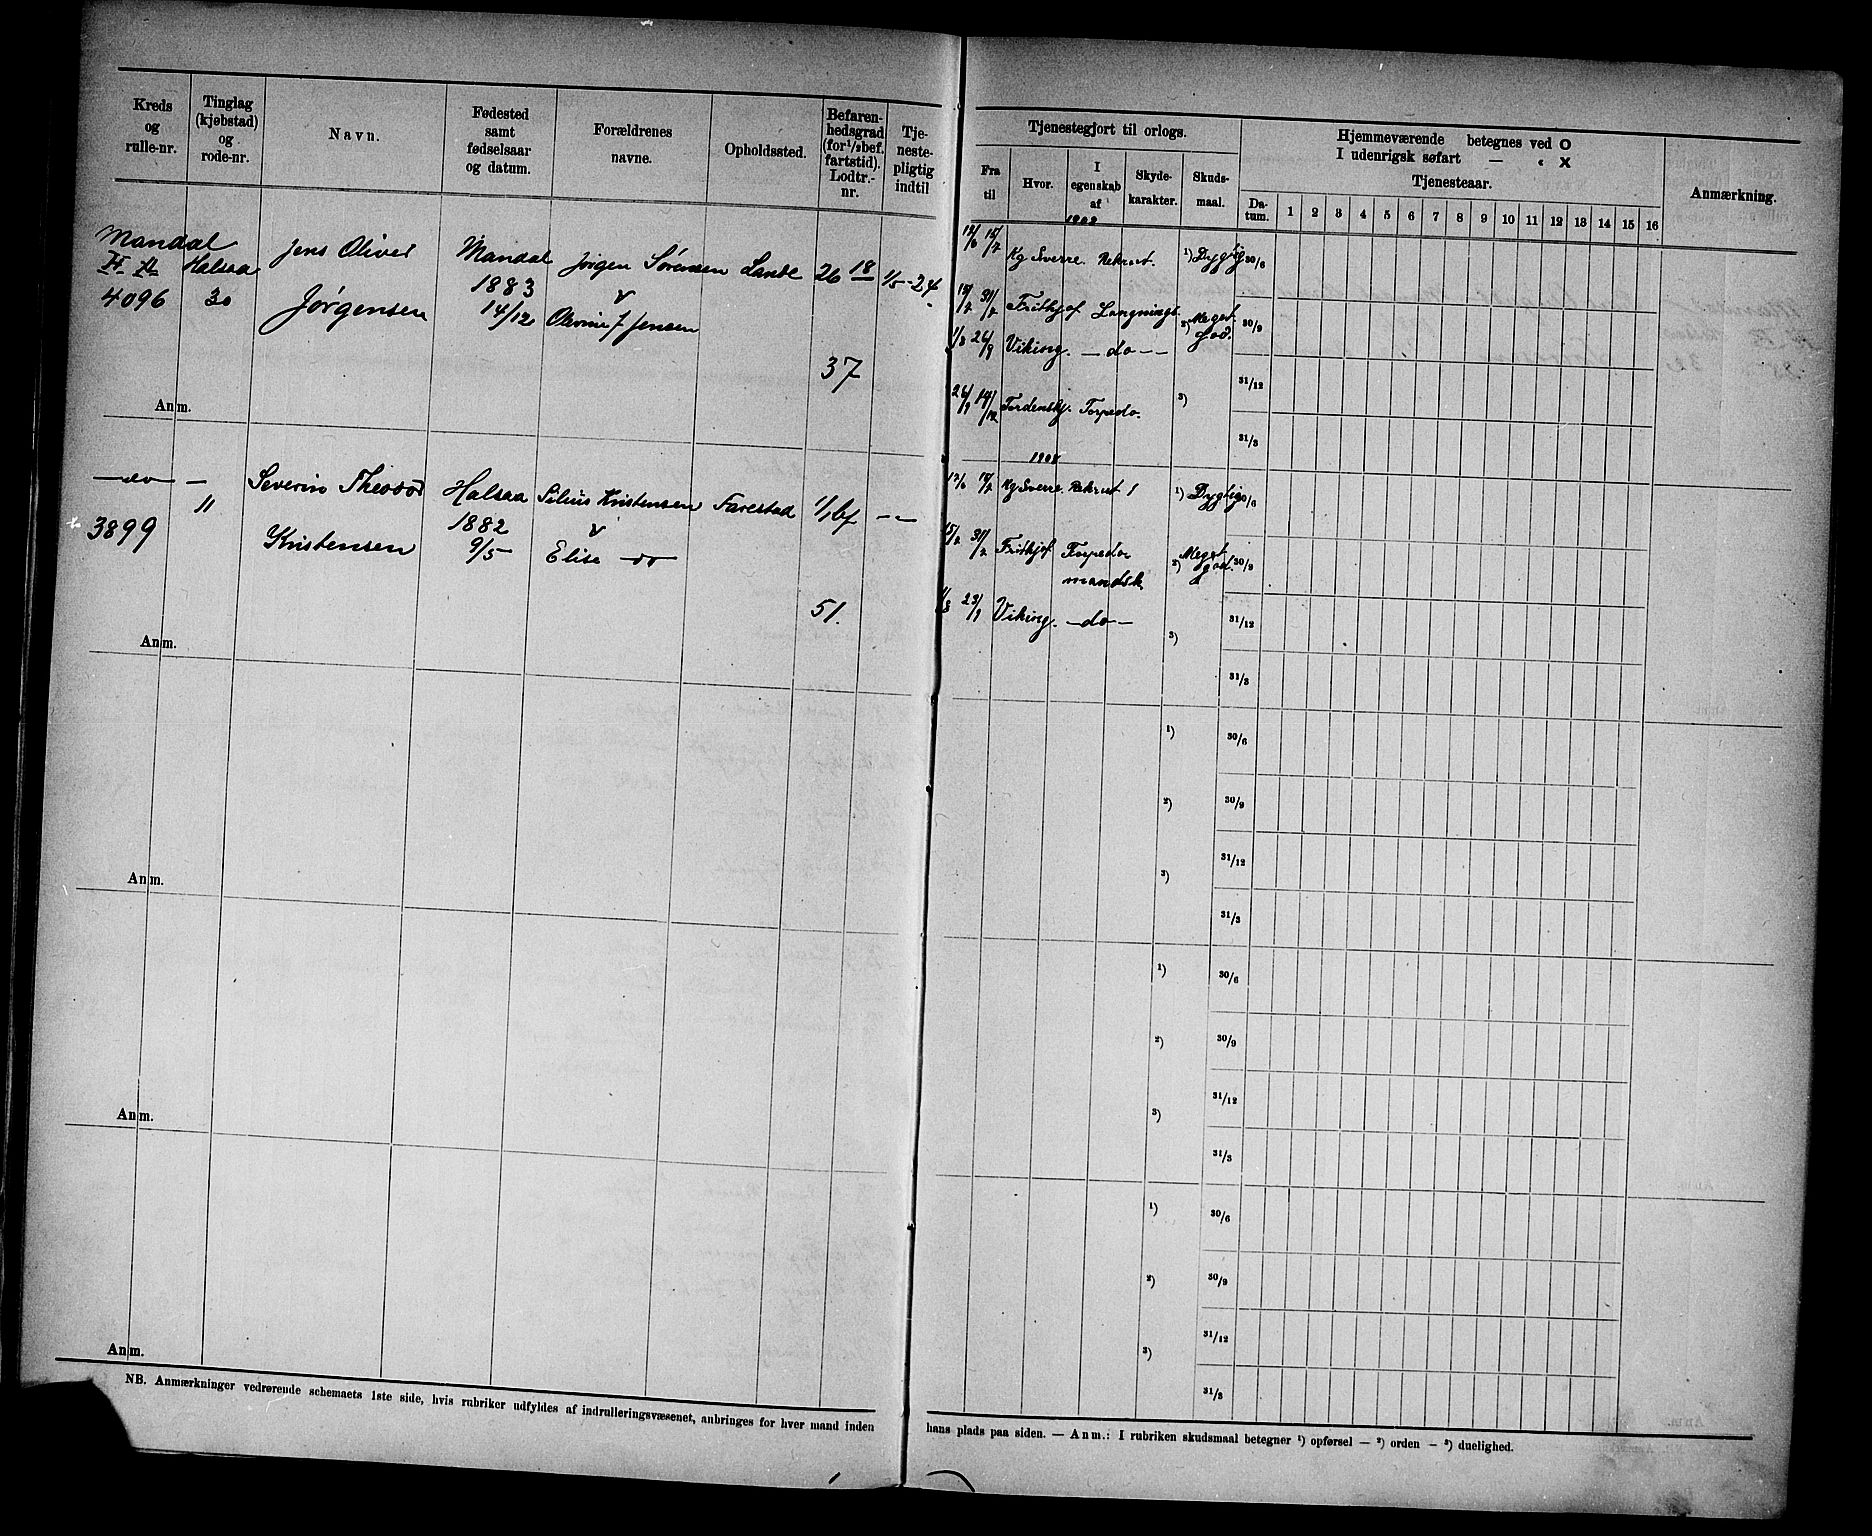 Kreds og rulle-nr.
Tinglag (kjøbstad) og rode-nr.
Navn.
Fødested samt fødselsaar og datum.
Forældrenes navne.
Opholdssted.
Befaren-hedsgrad (for 1/2 bef. fartstid). Lodtr.-nr.
Tje-neste-pligtig indtil
Tjenestegjort til orlogs.
Fra til
Hvor.
I egenskab af
Skyde-karakter.
Skuds-maal.
Hjemmeværende betegnes ved O
I udenrigsk søfart — « X
Tjenesteaar.
Da-tum.
1 2 3 4 5 6 7 8 9 10 11 12 13 14 15 16
Anmærkning.
Mandal
4096
Halsaa
30
Jens Oliver
Jørgensen
Mandal
1883
14/12
Jørgen Sørensen
Jensen
Lande
26 18
37
1/5-24
12/6 15/7 Kg Sverre. Rekrut. 1) Dygtig 30/6
15/7 31/7 Frithjof Langnings. 2) Meget God. 30/9
1/8 26/9 Viking. —do—
31/12
26/9 14/12 Tordenskj. Torpedo. 3)
31/3
Anm.
—do—
3899
—
11
Severin Theodor
Kristensen
Halsaa
1882
9/5
Silius Kristensen
Elise —do
Farestad
1/1 bf
51.
——
12/6 Kg Sverre. Rekrut 1 1) Dygtig 30/6
15/7 31/7 Frithjof Torpedo mandsk. 2) Meget god. 30/9
1/8 23/9 Viking. —do— 3) 31/12
31/3
Anm.
1) 30/6
2) 30/9
3) 31/12
31/3
Anm.
1) 30/6
2) 30/9
3) 31/12
31/3
Anm.
1) 30/6
2) 30/9
3) 31/12
31/3
Anm.
NB. Anmærkninger vedrørende schemaets 1ste side, hvis rubriker udfyldes af indrulleringsvæsenet, anbringes for hver mand inden
hans plads paa siden. — Anm.: I rubriken skudsmaal betegner 1) opførsel — 2) orden — 3) duelighed.